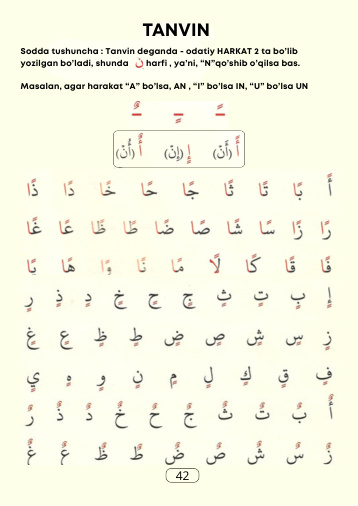 TANVIN
Sodda tushuncha : Tanvin deganda - odatiy HARKAT 2 ta bo'lib
yozilgan bo'ladi, shunda نْ harfi , ya'ni, “N”qo'shib o'qilsa bas.
Masalan, agar harakat “A” bo'lsa, AN , “I” bo'lsa IN, “U” bo'lsa UN
ـً ـٍ ـٌ
أً (أَنْ) إٍ (إِنْ) أٌ (أُنْ)
أً بًا تًا ثًا جًا حًا خًا دًا ذًا
رًا زًا سًا شًا صًا ضًا طًا ظًا عًا غًا
فًا قًا كًا لًا مًا نًا وًا هًا يًا
إٍ بٍ تٍ ثٍ جٍ حٍ خٍ دٍ ذٍ رٍ
زٍ سٍ شٍ صٍ ضٍ طٍ ظٍ عٍ غٍ
فٍ قٍ كٍ لٍ مٍ نٍ وٍ هٍ يٍ
أٌ بٌ تٌ ثٌ جٌ حٌ خٌ دٌ ذٌ رٌ
زٌ سٌ شٌ صٌ ضٌ طٌ ظٌ عٌ غٌ
42